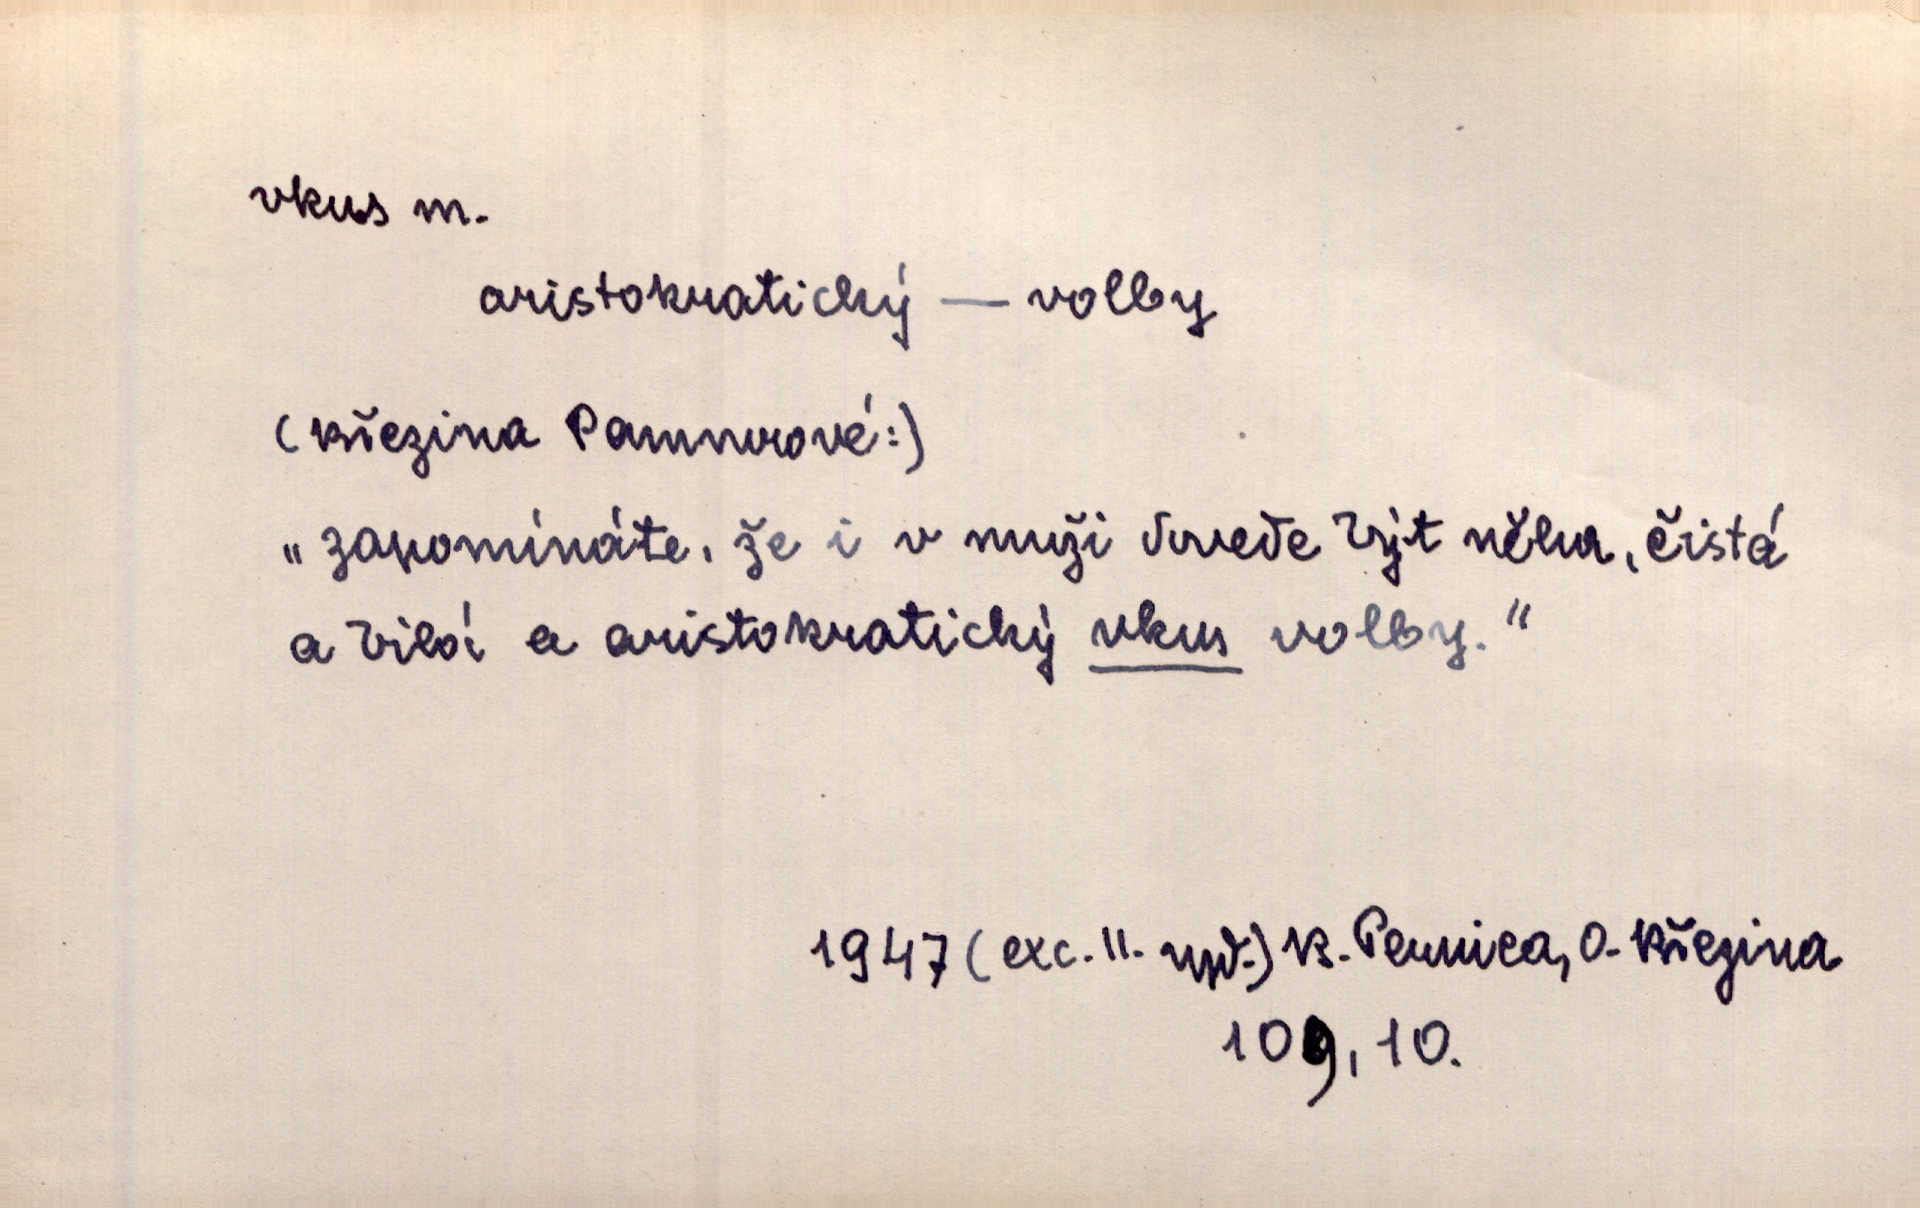 vkus m.
aristokratický — volby
(Březina Pammrové:)
„zapomínáte, že i v muži dovede žít něha, čistá
a bílá a aristokratický vkus volby."
1947 (exc. II. vyd.) B. Pernica, O. Březina
109, 10.